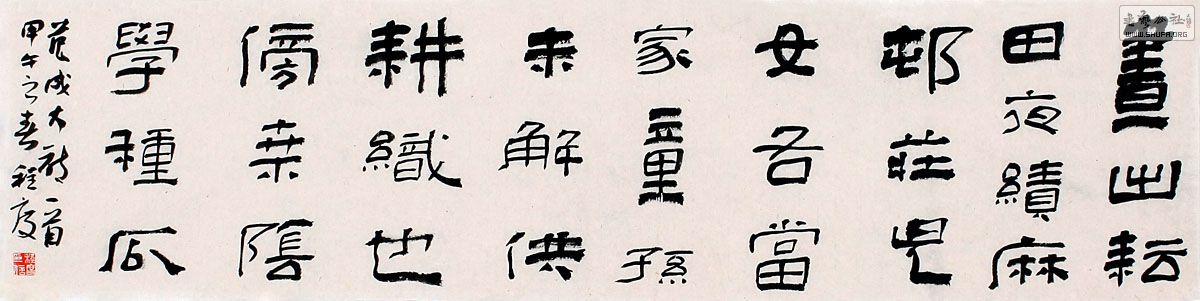 晝出耘
田夜績麻
邨莊兒
女各當
家童孫
未解供
耕織也
傍桑陰
學種瓜
范成大詩一首
甲午之春程度
WWW.SHUFA.ORG